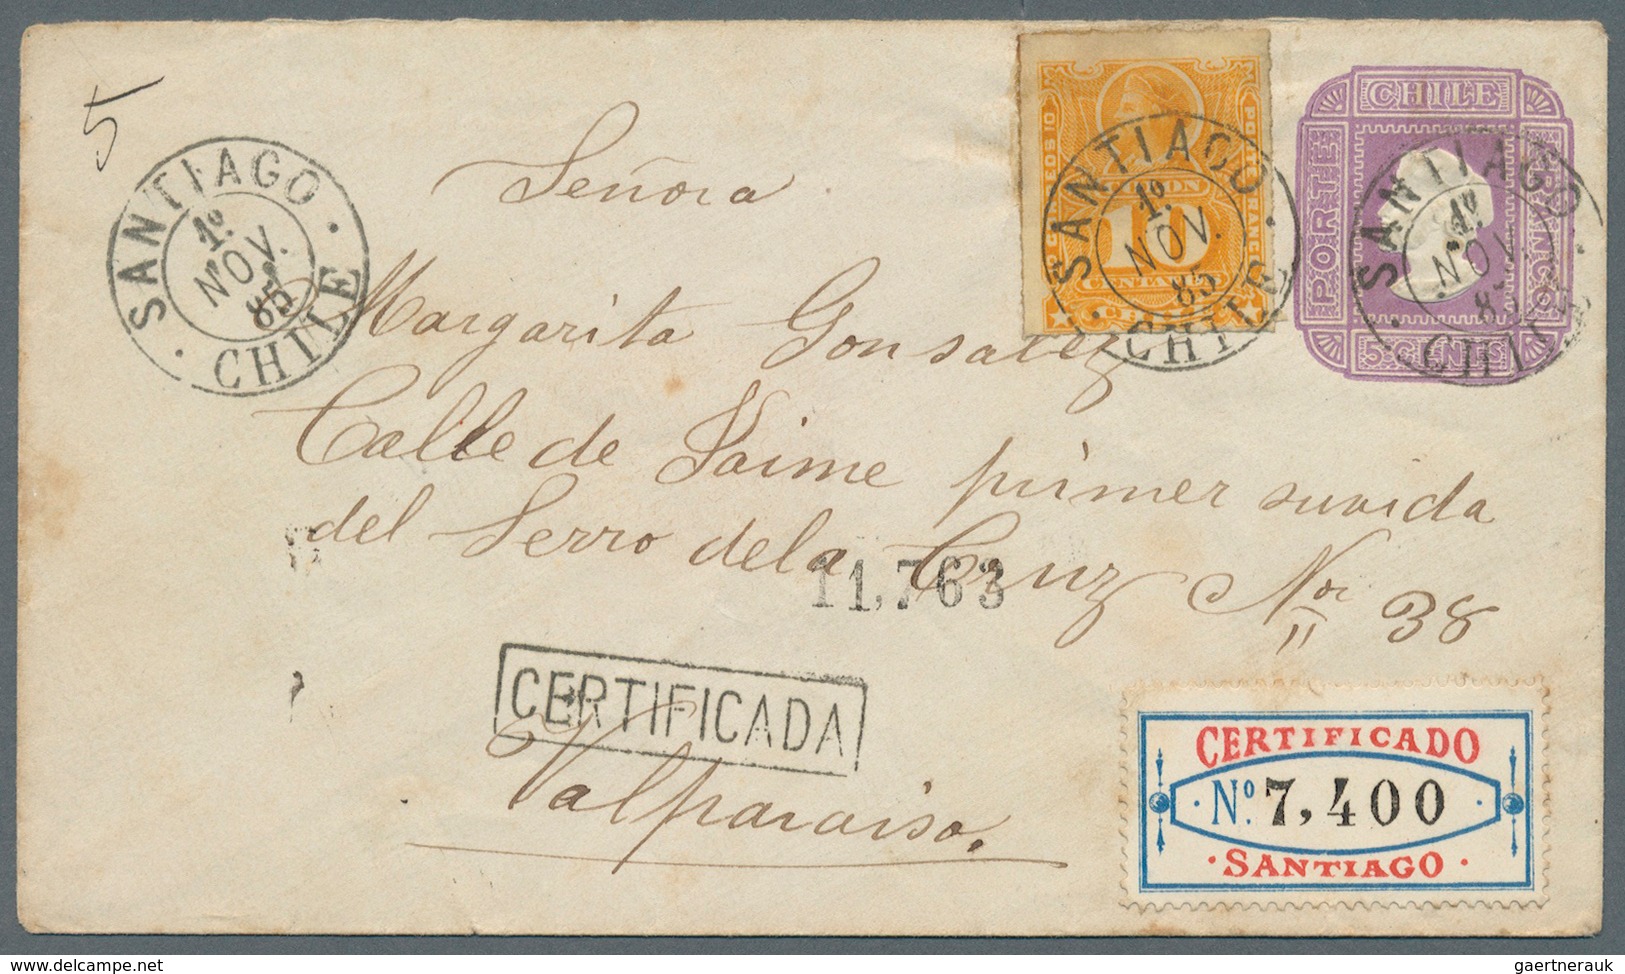 5
SANTIAGO
1º
NOV.
85
CHILE
COLON
10
CENTAVOS
CHILE
SANTIAGO
1º
NOV.
85
CHILE
CHILE
PORTE
FRANCO
5 CENTS
SANTIAGO
1º
NOV.
85
CHILE
Señora
Margarita Gonsalez
Calle de Jaime primer suvida
del Serro de la Cruz Nor 38
11,763
CERTIFICADA
Valparaiso.
CERTIFICADO
Nº. 7,400
SANTIAGO
delcampe.net
gaertnerauk